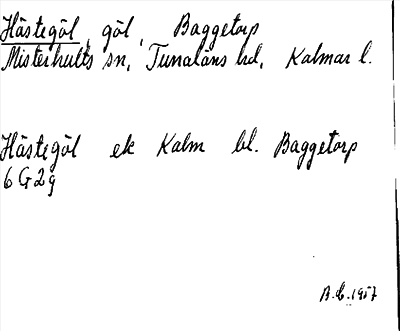 Hästegöl, göl, Baggetorp
Misterhults sn, Tunaläns hd, Kalmar l.
Hästegöl ek Kalm bl. Baggetorp
6 G 2 g
1957